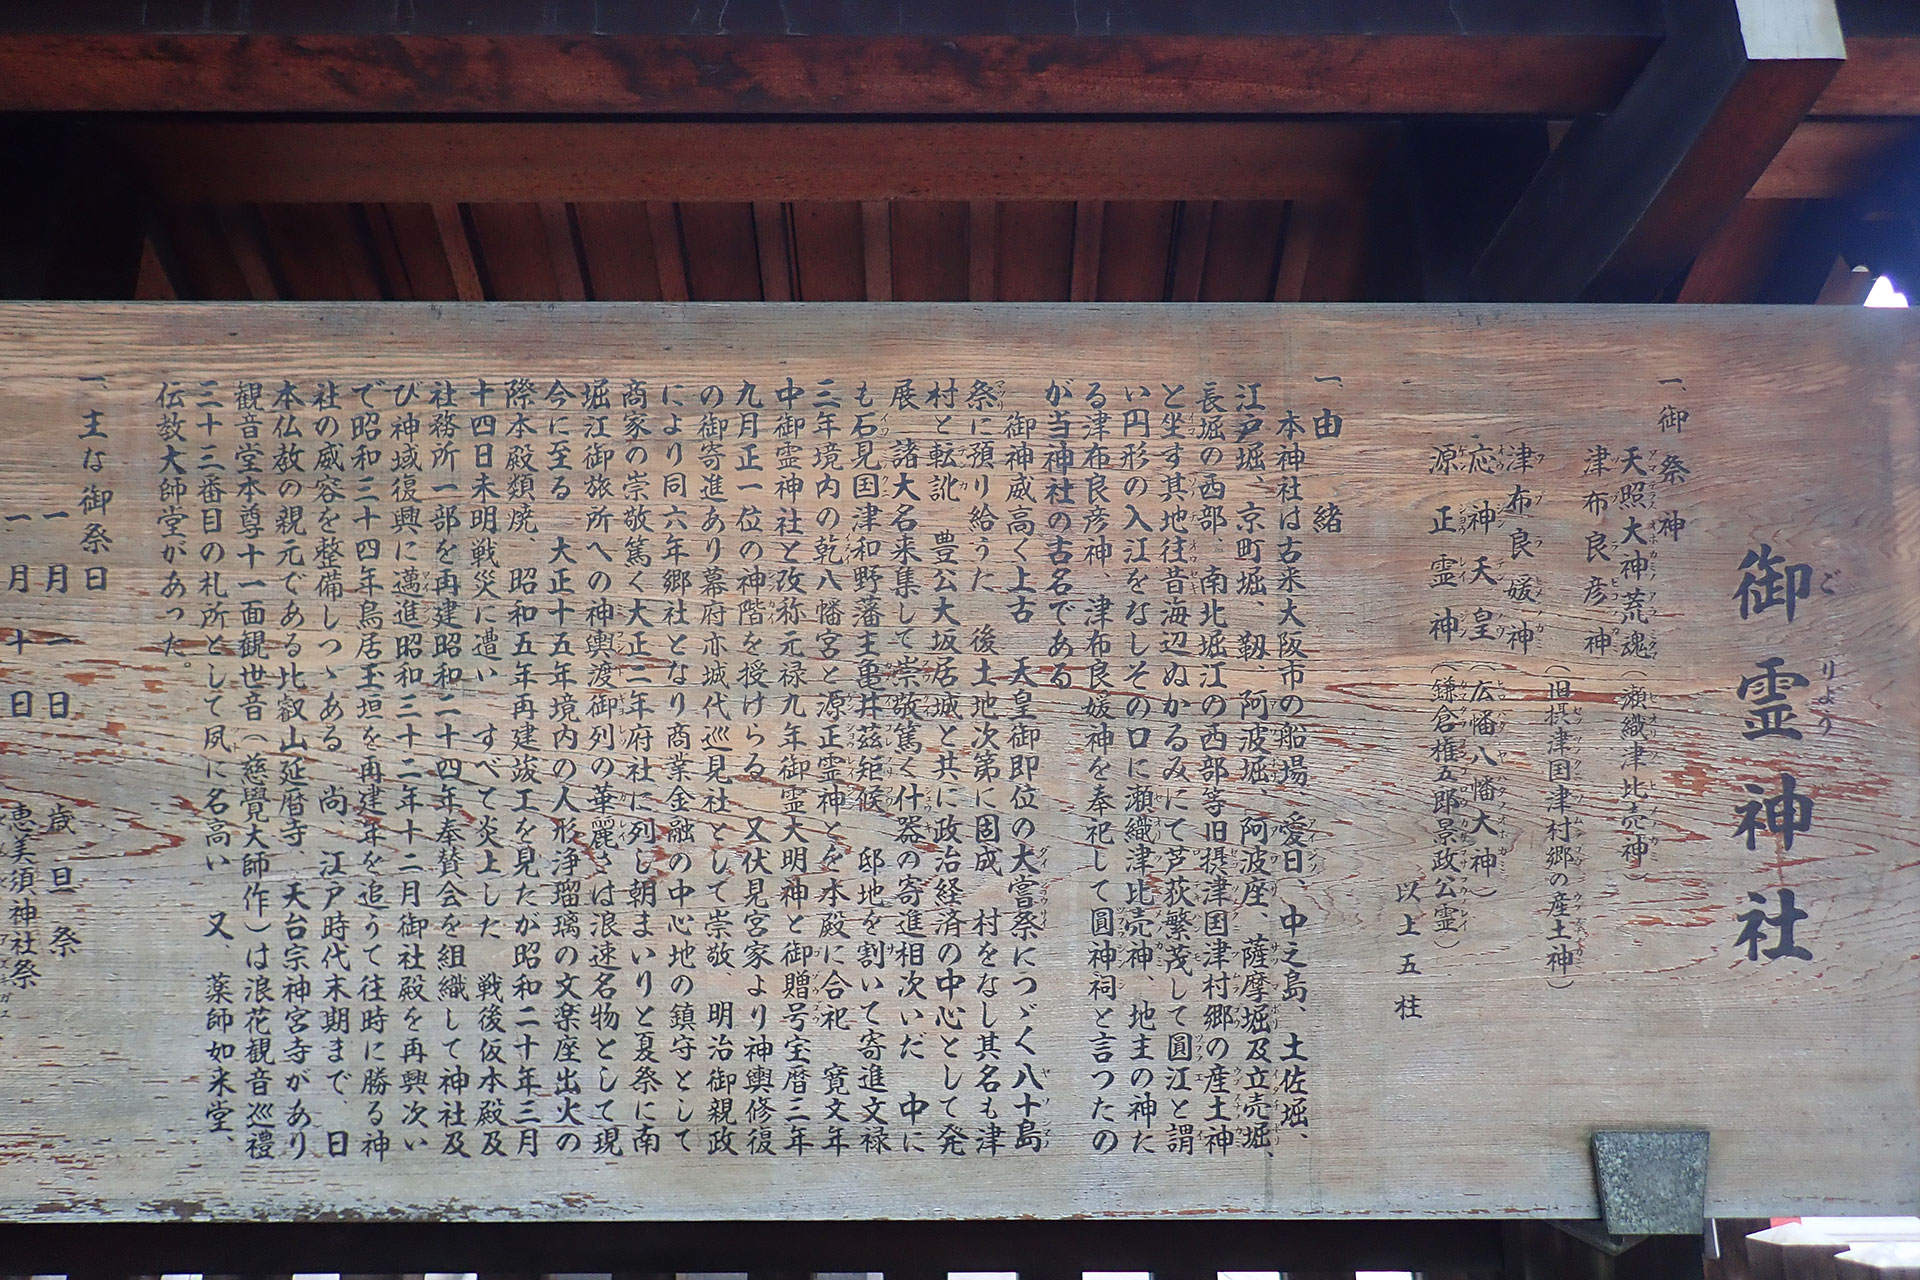 御霊神社
ごりょう
一、御祭神
天照大神荒魂（瀬織津比売神）
津布良彦神
（旧摂津国津村郷の産土神）
津布良媛神
応神天皇（広幡八幡大神）
源正霊神（鎌倉権五郎景政公霊）
以上五柱
一、由緒
本神社は古来大阪市の船場、愛日、中之島、土佐堀、
江戸堀、京町堀、靱、阿波堀、阿波座、薩摩堀及立売堀、
長堀の西部、南北堀江の西部等旧摂津国津村郷の産土神
と坐す其地往昔海辺ぬかるみにて芦荻繁茂して圓江と謂
い円形の入江をなしその口に瀬織津比売神、地主の神た
る津布良彦神　津布良媛神を奉祀して圓神祠と言つたの
が当神社の古名である
御神威高く上古　天皇御即位の大嘗祭につゞく八十島
祭に預り給うた　後　土地次第に固成　村をなし其名も津
村と転訛　豊公大坂居城と共に政治経済の中心として発
展　諸大名来集して崇敬篤く什器の寄進相次いだ　中に
も石見国津和野藩主亀井茲矩候　邸地を割いて寄進文禄
三年境内の乾八幡宮と源正霊神とを本殿に合祀　寛文年
中御霊神社と改称元禄九年御霊大明神と御贈号宝暦三年
九月正一位の神階を授けらる　又伏見宮家より神輿修復
の御寄進あり幕府亦城代巡見社として崇敬　明治御親政
により同六年郷社となり商業金融の中心地の鎮守として
商家の崇敬篤く大正二年府社に列し朝まいりと夏祭に南
堀江御旅所への神輿渡御列の華麗さは浪速名物として現
今に至る　大正十五年境内の人形浄瑠璃の文楽座出火の
際本殿類焼　昭和五年再建竣工を見たが昭和二十年三月
十四日未明戦災に遭い　すべて炎上した　戦後仮本殿及
社務所一部を再建昭和二十四年奉賛会を組織して神社及
び神域復興に邁進昭和三十二年十二月御社殿を再興次い
で昭和三十四年鳥居玉垣を再建年を追うて往時に勝る神
社の威容を整備しつゝある　尚　江戸時代末期まで、日
本仏教の親元である比叡山延暦寺、天台宗神宮寺があり
観音堂本尊十一面観世音（慈覺大師作）は浪花観音巡禮
三十三番目の札所として夙に名高い　又、薬師如来堂、
伝教大師堂があった。
一、主な御祭日
一月一日　歳旦祭
一月十日　恵美須神社祭